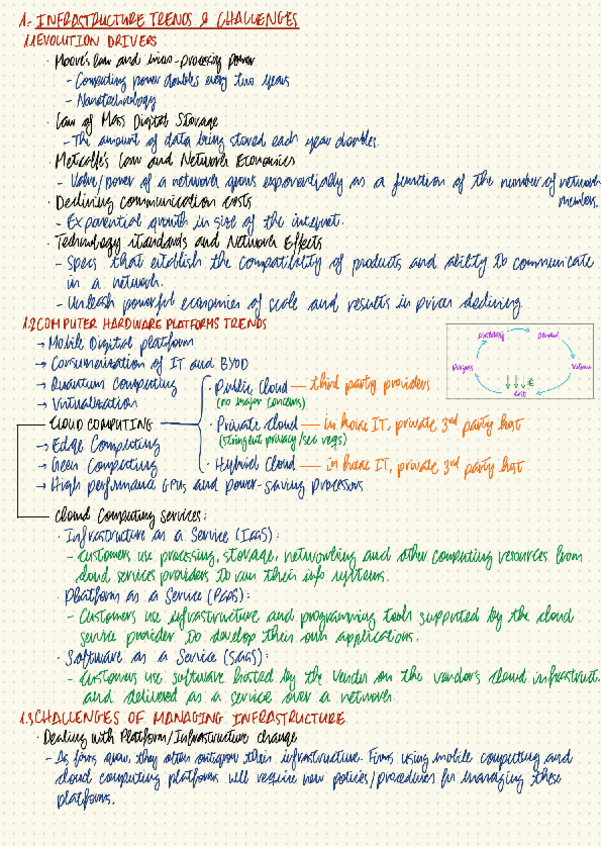 1. INFRASTRUCTURE TRENDS & CHALLENGES
1.1 EVOLUTION DRIVERS
· Moore's law and micro-processing power
- Computing power doubles every two years
- Nanotechnology
· Law of Mass Digital Storage
- The amount of data being stored each year doubles.
· Metcalfe's Law and Network Economics
- Value/power of a network grows exponentially as a function of the number of network
members.
· Declining communication costs
- Exponential growth in size of the internet.
· Technology standards and Network Effects
- Specs that establish the compatibility of products and ability to communicate
in a network.
- Unleash powerful economies of scale and results in prices declining
1.2 COMPUTER HARDWARE PLATFORMS TRENDS
→ Mobile Digital platform
→ Consumerization of IT and BYOD
→ Quantum Computing
→ Virtualization
CLOUD COMPUTING
→ Edge Computing
→ Green Computing
→ High performance GPUs and power-saving processors
· Public Cloud — third party providers
(no major concerns)
· Private cloud — in house IT, private 3rd party host
(stringent privacy/sec regs)
· Hybrid Cloud — in house IT, private 3rd party host
Demand
Volume
Cost
€
Cloud Computing services:
· Infrastructure as a Service (IaaS):
- Customers use processing, storage, networking and other computing resources from
cloud services providers to run their info systems.
· Platform as a Service (PaaS):
- Customers use infrastructure and programming tools supported by the cloud
service provider to develop their own applications.
· Software as a Service (SaaS):
- Customers use software hosted by the vendor on the vendor's cloud infrastruct.
and delivered as a service over a network.
1.3 CHALLENGES OF MANAGING INFRASTRUCTURE
· Dealing with Platform/Infrastructure change
- As firms grow, they often outgrow their infrastructure. Firms using mobile computing and
cloud computing platforms will require new policies/procedures for managing these
platforms.